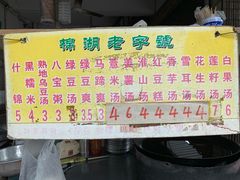 棉湖老字號
什锦
黑糯米
熟地乌豆汤
八宝粥
绿豆汤
绿豆爽
马蹄爽
薏米汤
姜薯汤
淮山汤
红豆汤
香芋汤
雪耳汤
花生汤
莲籽汤
白果汤
5 4 3 3 3 3.5 3 4 6 4 4 4 4 4 7 6